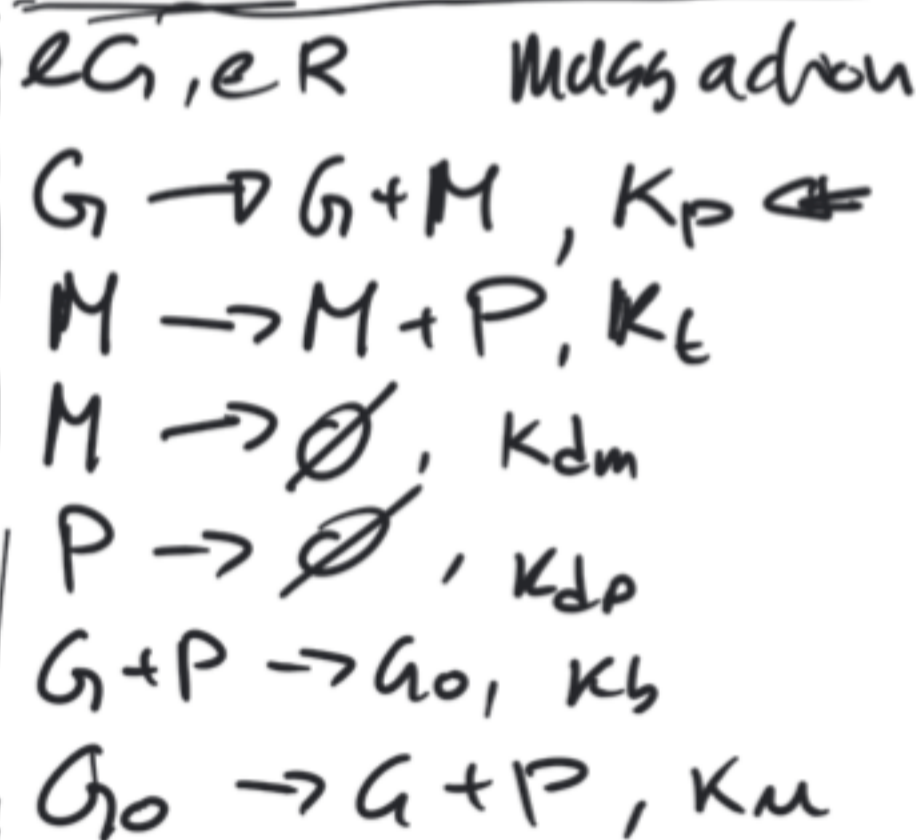 eG, eR Mass action
G → G + M, Kp ⇐
M → M + P, Kt
M → ∅, Kdm
P → ∅, Kdp
G + P → G0, Kb
G0 → G + P, Ku